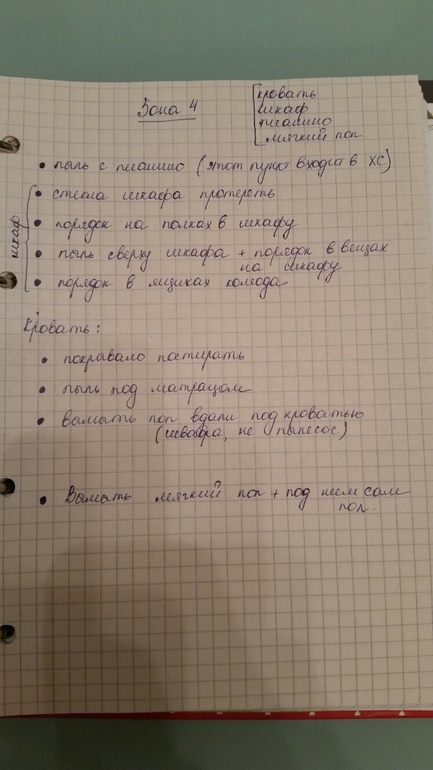 Зона 4
кровать
шкаф
пианино
мягкий пол
• пыль с пианино (этот пункт входит в ХС)
шкаф
• стекла шкафа протереть
• порядок на полках в шкафу
• пыль сверху шкафа + порядок в вещах
на шкафу
• порядок в ящиках комода
Кровать:
• покрывало постирать
• пыль под матрацом
• вымыть пол вдали под кроватью
(швабра, не пылесос)
• Вымыть мягкий пол + под ним сам
пол.